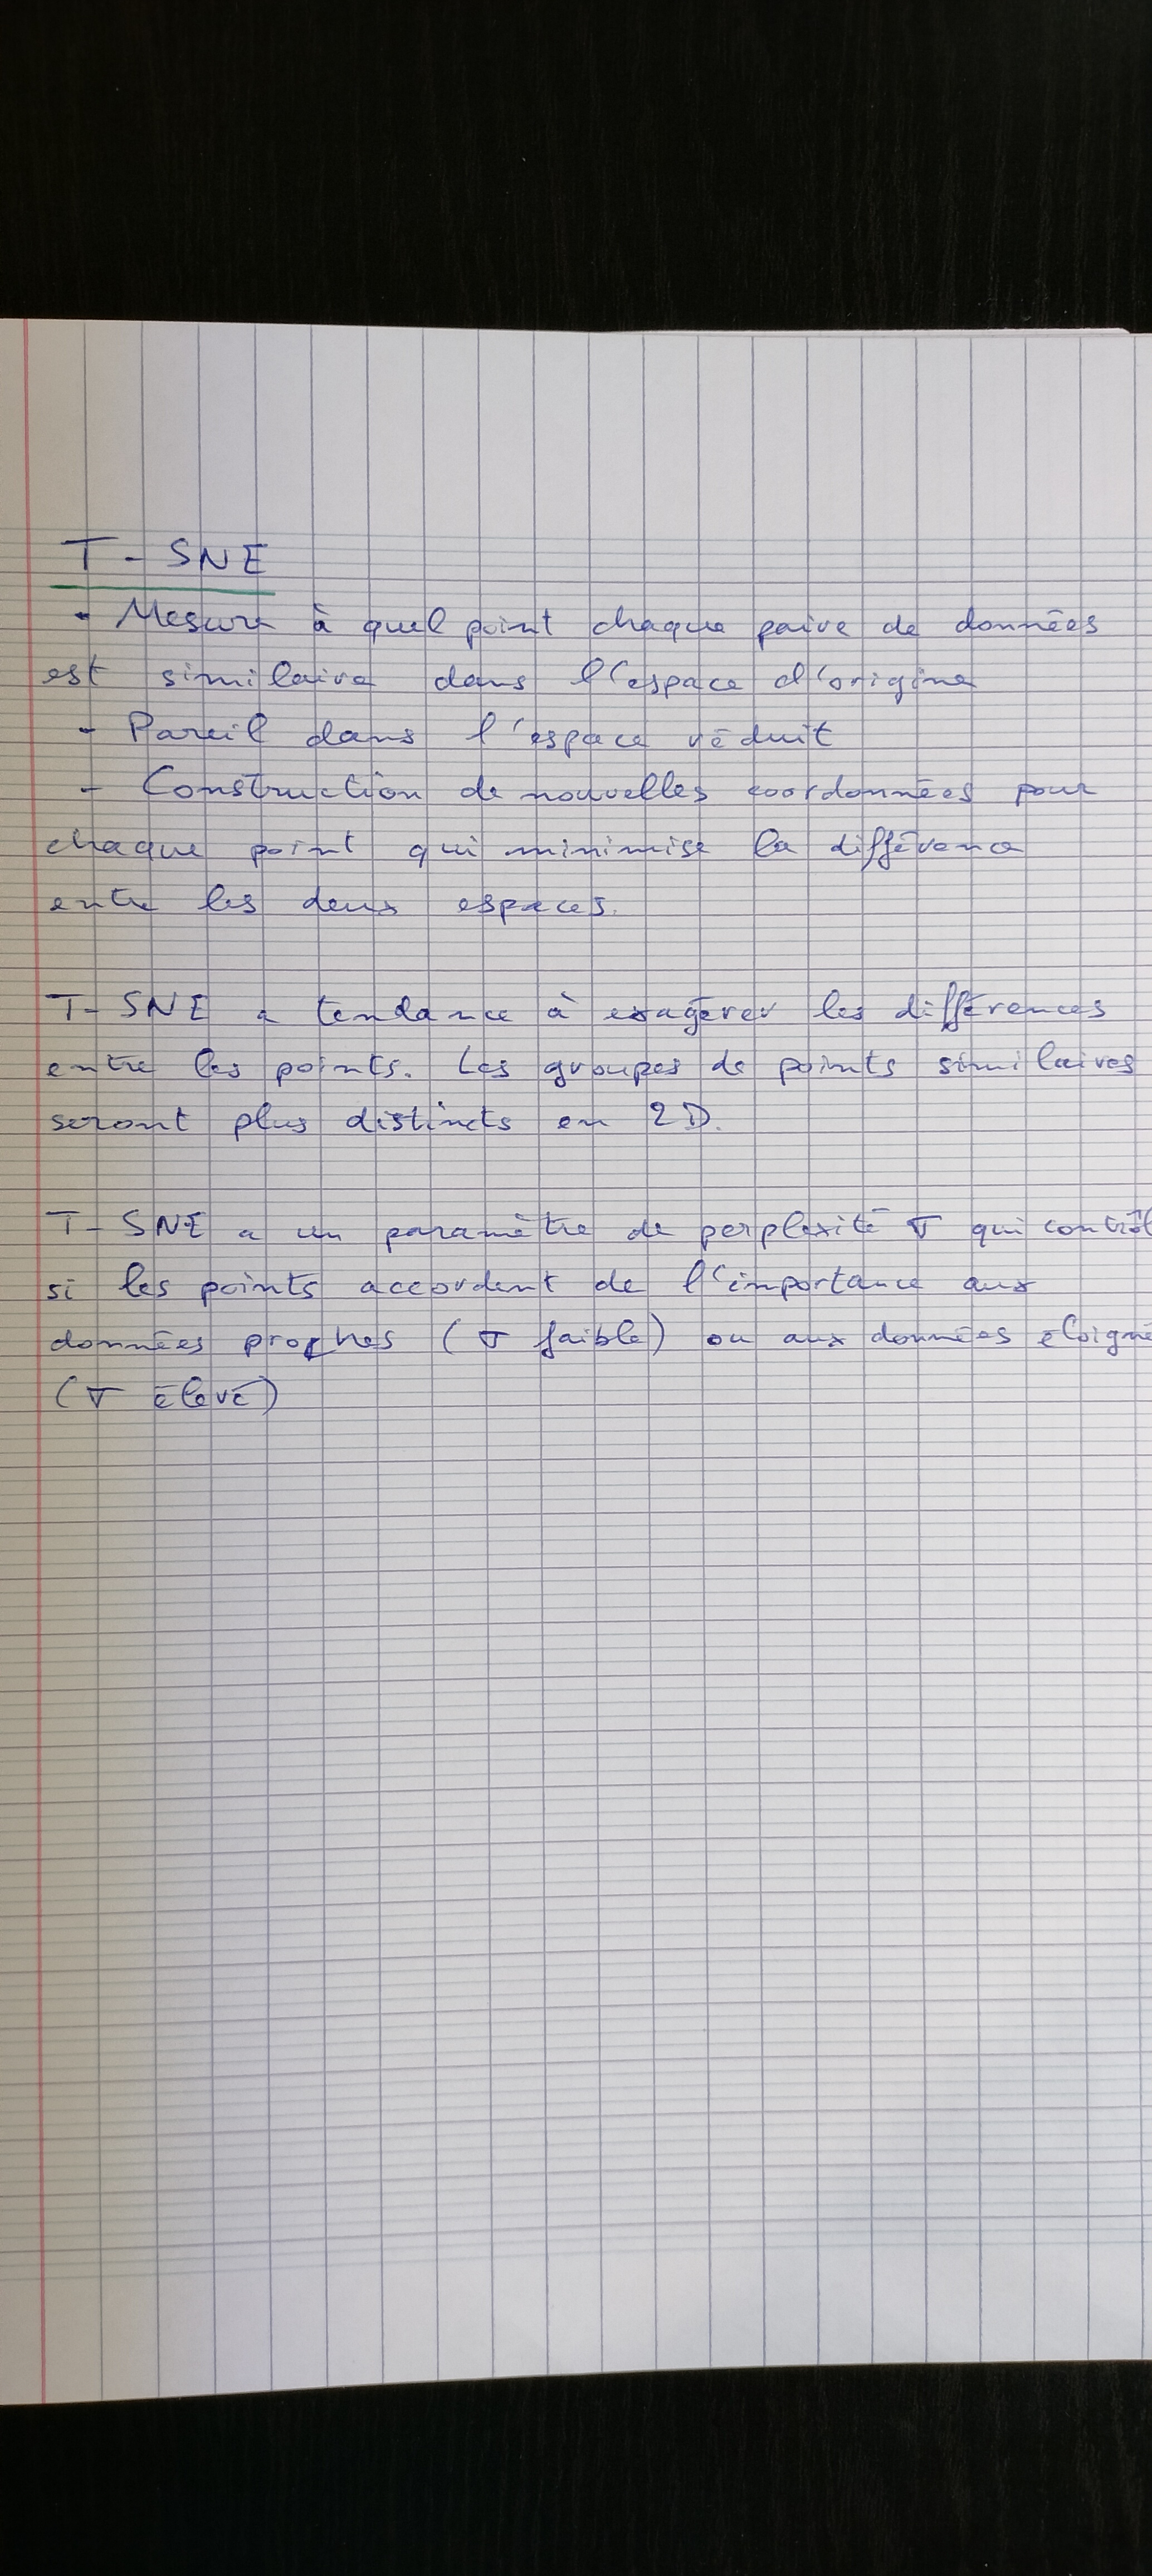 T-SNE
- Mesure à quel point chaque paire de données
est similaire dans l'espace d'origine
- Pareil dans l'espace réduit
- Construction de nouvelles coordonnées pour
chaque point qui minimise la différence
entre les deux espaces.
T-SNE a tendance à exagérer les différences
entre les points. Les groupes de points similaires
seront plus distincts en 2D.
T-SNE a un paramètre de perplexité σ qui contrôl
si les points accordent de l'importance aux
données proches (σ faible) ou aux données éloigné
(σ élevé)